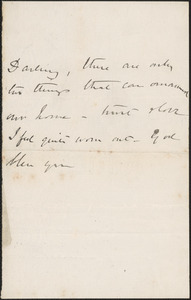 Darling, there are only
two things that can ornament
our home - trust & love
I feel quite worn out - God
bless you